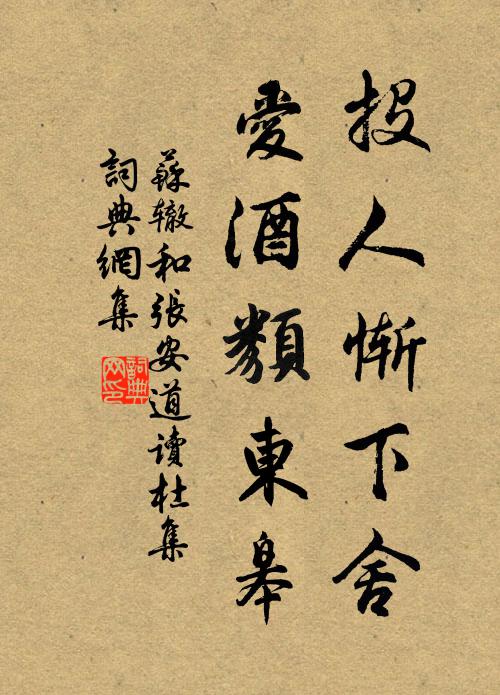 投人慚下舍
愛酒類東皋
蘇轍和張安道讀杜集
詞典網集
詞典
网印